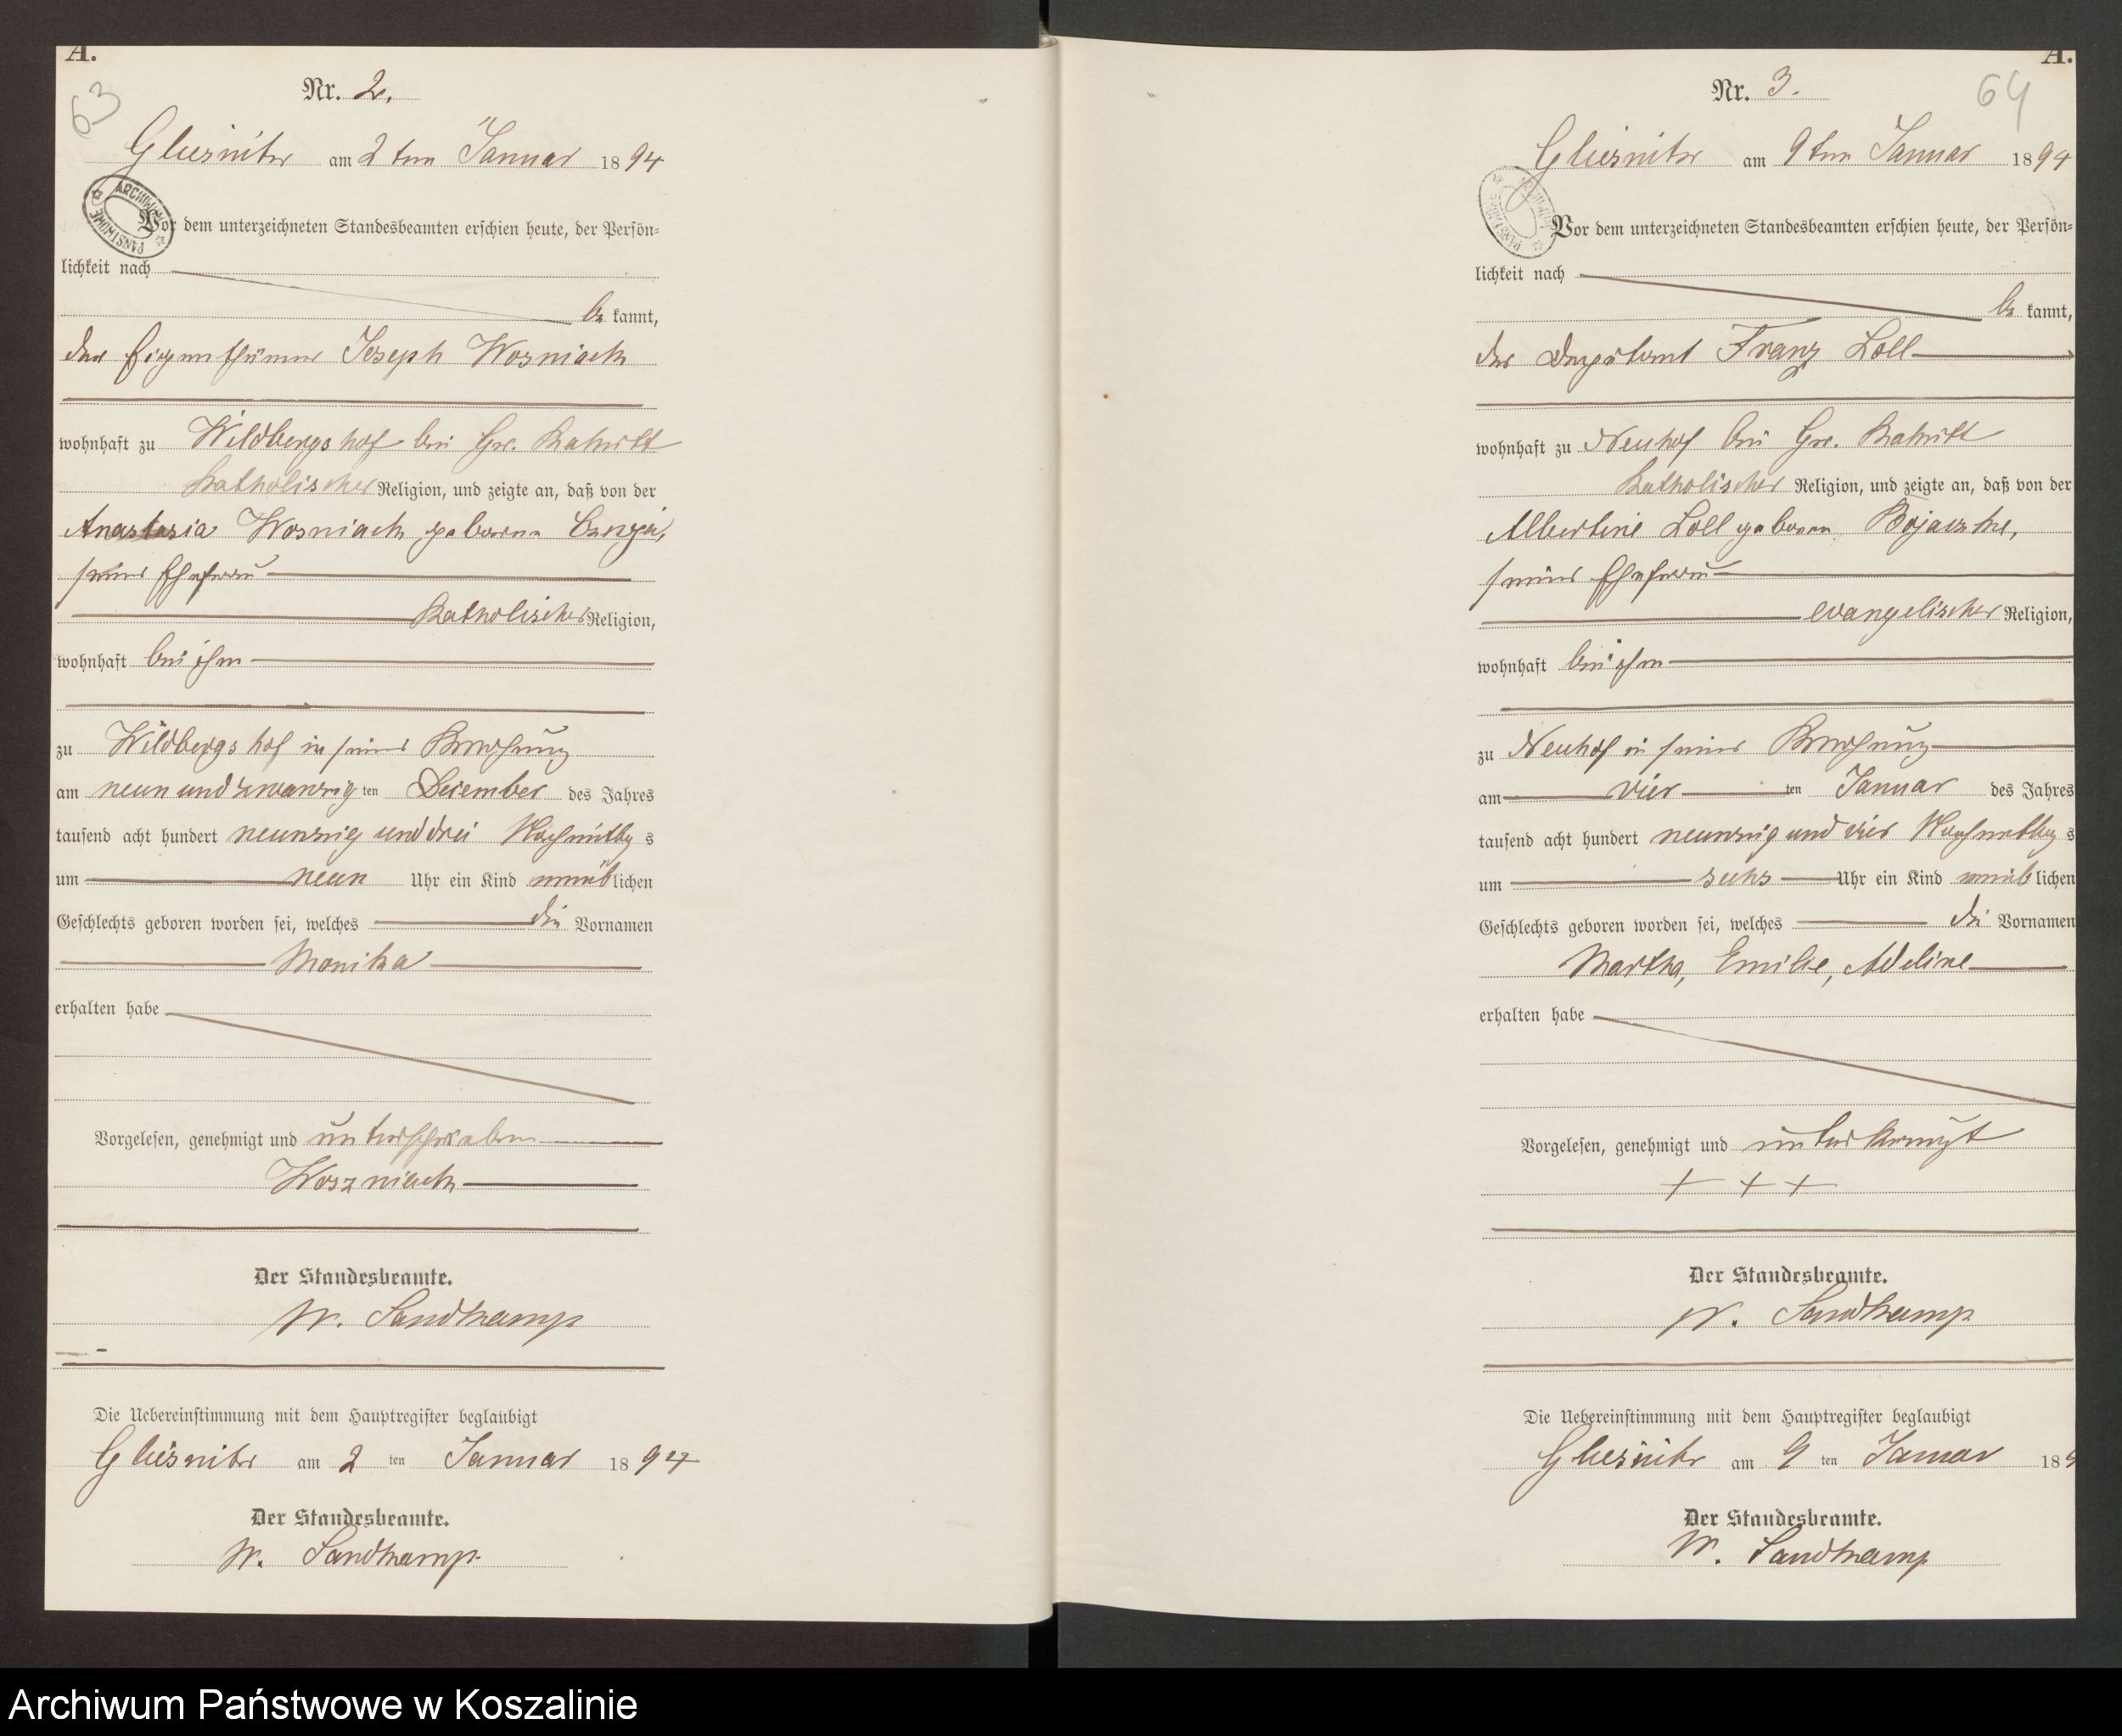 A.
63
Nr. 2.
Gliesnitz am 2ten Januar 1894
ARCHIWUM PAŃSTWOWE
Vor dem unterzeichneten Standesbeamten erschien heute, der Persön-
lichkeit nach
be kannt,
der Eigenthümer Joseph Wosniack
wohnhaft zu Wildbergshof bei Gr.
Katholischer Religion, und zeigte an, daß von der
Anastasia Wosniack geborene
seiner Ehefrau
Katholischer Religion,
wohnhaft bei ihm
zu Wildbergshof in seiner Behausung
am neun und zwanzig ten Dezember des Jahres
tausend acht hundert neunzig und drei Nachmittag s
um neun Uhr ein Kind weiblichen
Geschlechts geboren worden sei, welches die Vornamen
Monika
erhalten habe
Vorgelesen, genehmigt und unterschrieben
Woszniack
Der Standesbeamte.
W. Sandkamp
Die Uebereinstimmung mit dem Hauptregister beglaubigt
Gliesnitz am 2 ten Januar 1894
Der Standesbeamte.
W. Sandkamp
A.
64
Nr. 3.
Gliesnitz am 9ten Januar 1894
ARCHIWUM PAŃSTWOWE
Vor dem unterzeichneten Standesbeamten erschien heute, der Persön-
lichkeit nach
be kannt,
der Deputant Franz Loll
wohnhaft zu Neuhof bei Gr.
Katholischer Religion, und zeigte an, daß von der
Albertine Loll geboren
seiner Ehefrau
evangelischer Religion,
wohnhaft bei ihm
zu Neuhof in seiner Behausung
am vier ten Januar des Jahres
tausend acht hundert neunzig und vier Nachmittag s
um sechs Uhr ein Kind weiblichen
Geschlechts geboren worden sei, welches die Vornamen
Martha, Emilie, Adeline
erhalten habe
Vorgelesen, genehmigt und unterkreuzt
+ + +
Der Standesbeamte.
W. Sandkamp
Die Uebereinstimmung mit dem Hauptregister beglaubigt
Gliesnitz am 9 ten Januar 189
Der Standesbeamte.
W. Sandkamp
Archiwum Państwowe w Koszalinie